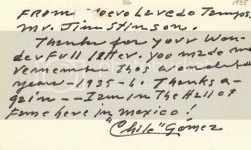 36
1935
FROM - Nuevo Laredo Tamps
Mr. Jim Stinson.
Thanks for your won-
derfull letter. You made me
remember thos wonderful
year - 1935-6! Thanks a-
gain -- I am in the Hall of
fame here in Mexico!
"Chile" Gómez